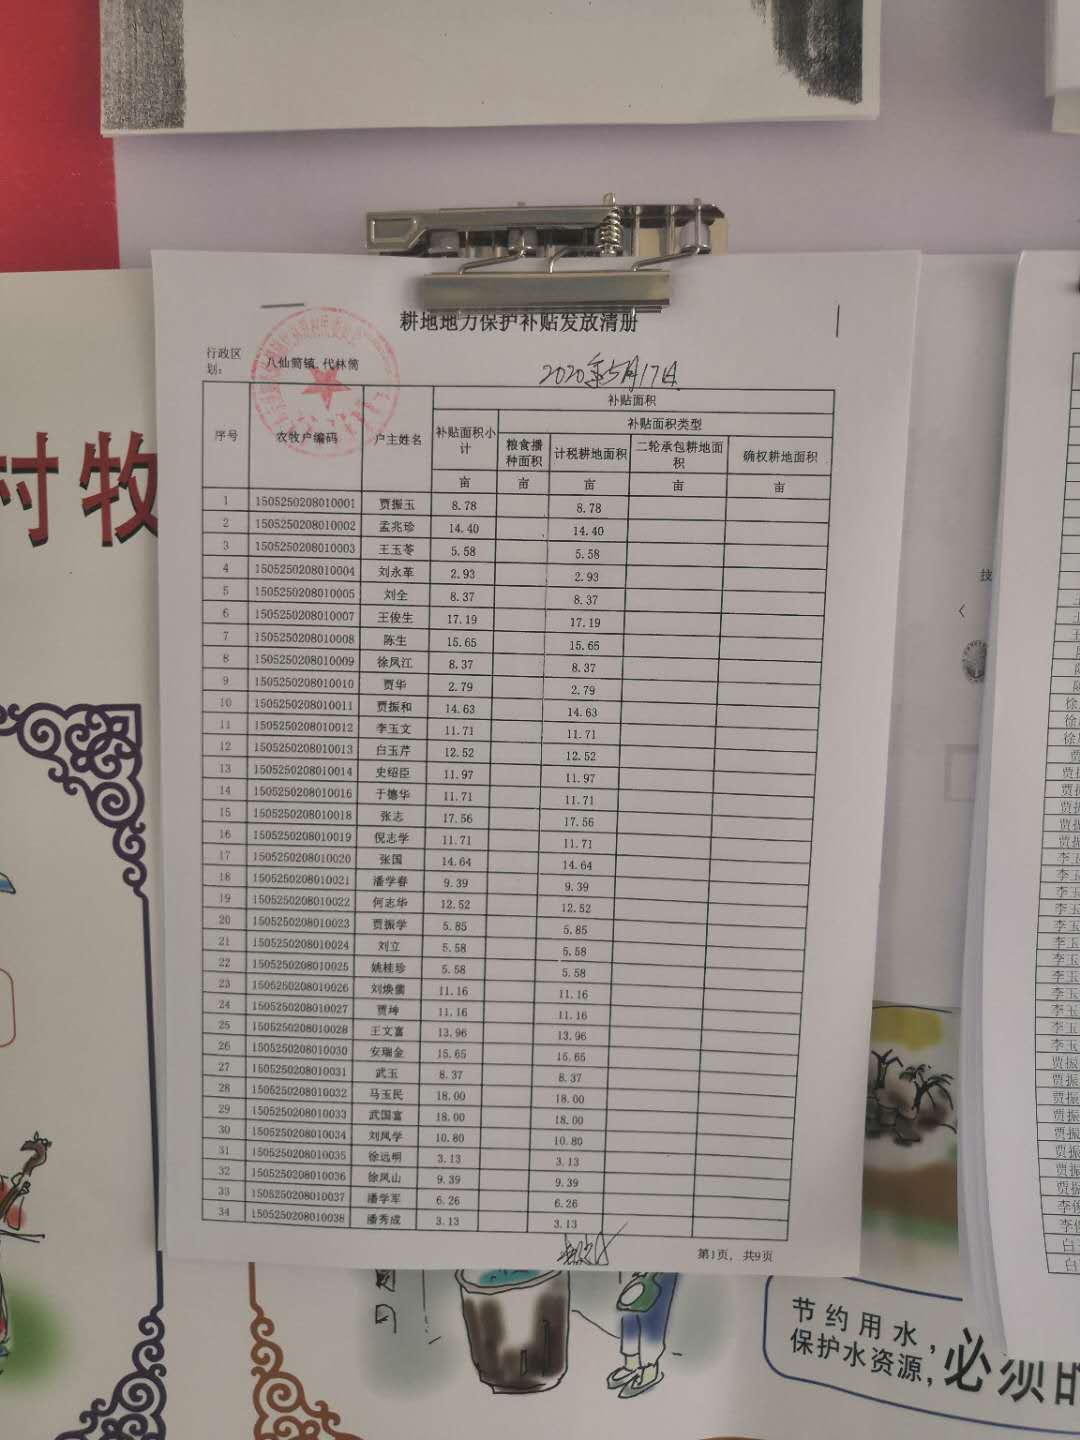 耕地地力保护补贴发放清册
行政区划: 八仙筒镇.代林筒
2020年5月17日
序号 农牧户编码 户主姓名 补贴面积
补贴面积小计 补贴面积类型
粮食播种面积 计税耕地面积 二轮承包耕地面积 确权耕地面积
亩 亩 亩 亩 亩
1 1505250208010001 贾振玉 8.78 8.78
2 1505250208010002 孟兆珍 14.40 14.40
3 1505250208010003 王玉苓 5.58 5.58
4 1505250208010004 刘永革 2.93 2.93
5 1505250208010005 刘全 8.37 8.37
6 1505250208010007 王俊生 17.19 17.19
7 1505250208010008 陈生 15.65 15.65
8 1505250208010009 徐凤江 8.37 8.37
9 1505250208010010 贾华 2.79 2.79
10 1505250208010011 贾振和 14.63 14.63
11 1505250208010012 李玉文 11.71 11.71
12 1505250208010013 白玉芹 12.52 12.52
13 1505250208010014 史绍臣 11.97 11.97
14 1505250208010016 于德华 11.71 11.71
15 1505250208010018 张志 17.56 17.56
16 1505250208010019 倪志学 11.71 11.71
17 1505250208010020 张国 14.64 14.64
18 1505250208010021 潘学春 9.39 9.39
19 1505250208010022 何志华 12.52 12.52
20 1505250208010023 贾振学 5.85 5.85
21 1505250208010024 刘立 5.58 5.58
22 1505250208010025 姚桂珍 5.58 5.58
23 1505250208010026 11.16 11.16
24 1505250208010027 贾坤 11.16 11.16
25 1505250208010028 王文富 13.96 13.96
26 1505250208010030 安瑞金 15.65 15.65
27 1505250208010031 武玉 8.37 8.37
28 1505250208010032 马玉民 18.00 18.00
29 1505250208010033 武国富 18.00 18.00
30 1505250208010034 刘凤学 10.80 10.80
31 1505250208010035 徐远明 3.13 3.13
32 1505250208010036 徐凤山 9.39 9.39
33 1505250208010037 潘学军 6.26 6.26
34 1505250208010038 潘秀成 3.13 3.13
第1页, 共9页
村牧
技
节约用水,
保护水资源,
必须